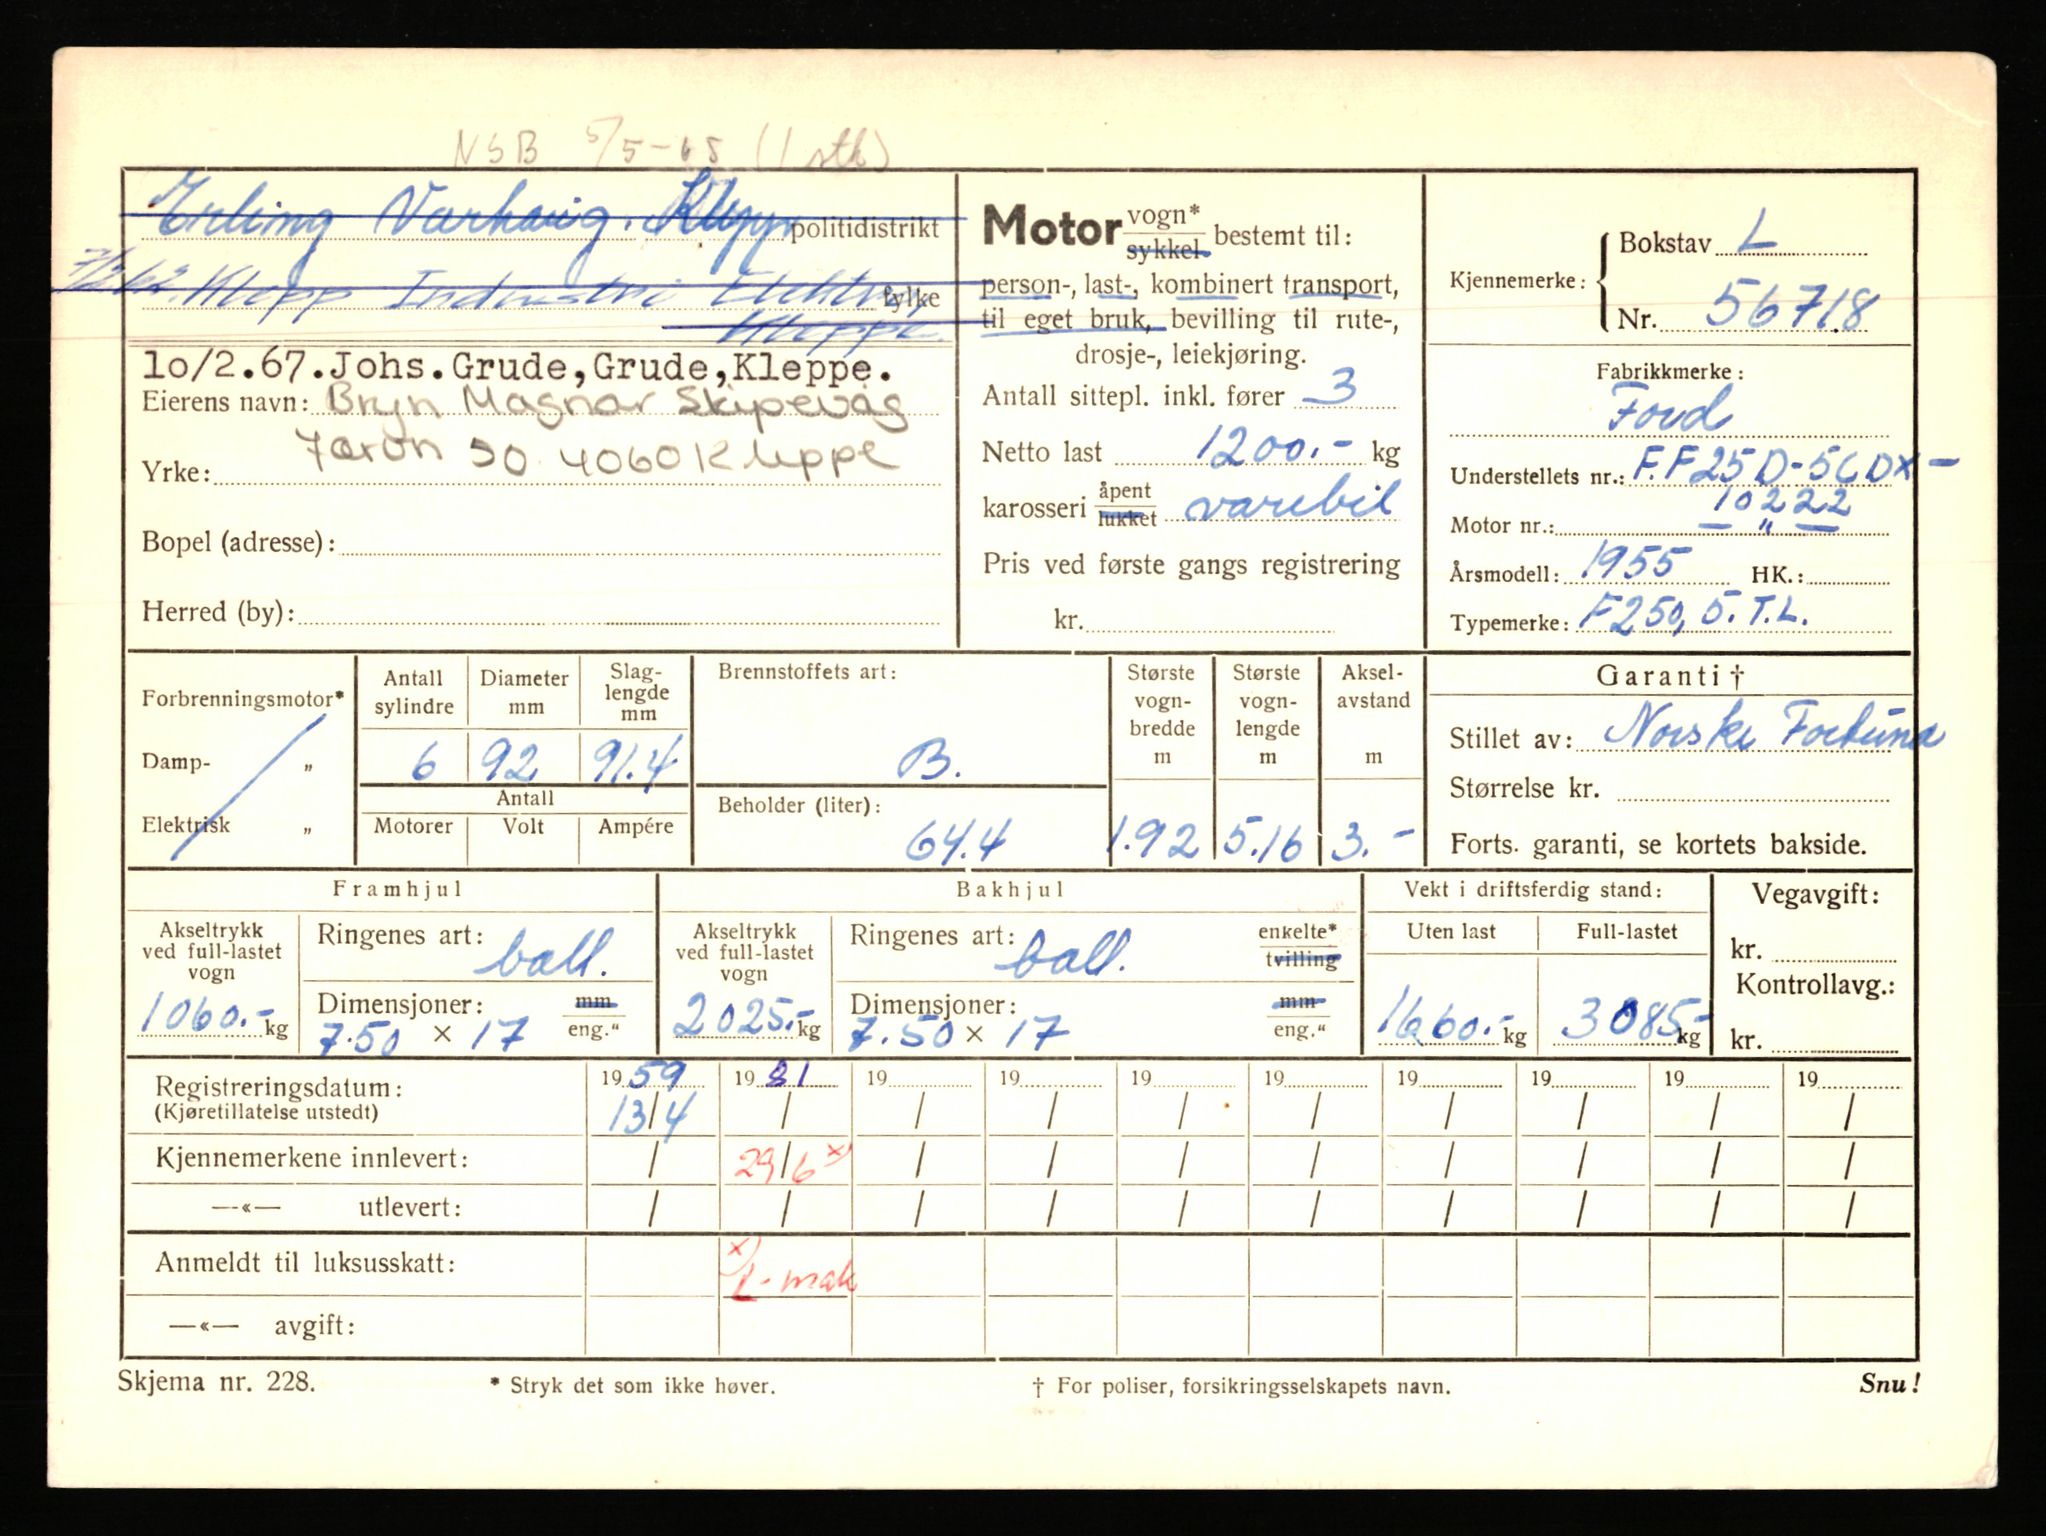 NSB 5/5-65 (1 stk)
Erling Varhaug. Klepp politidistrikt
Klepp Industri Elektr. fylke
Kleppe.
1o/2.67.Johs.Grude,Grude,Kleppe.
Eierens navn: Bryn Magnar Skipevåg
Jæron 50 4060 Kleppe
Yrke:
Bopel (adresse):
Herred (by):
Motor vogn* sykkel bestemt til:
person-, last-, kombinert transport,
til eget bruk, bevilling til rute-,
drosje-, leiekjøring.
Antall sittepl. inkl. fører 3
Netto last 1200.- kg
karosseri åpent lukket varebil
Pris ved første gangs registrering
kr.
Kjennemerke: Bokstav L
Nr. 56718
Fabrikkmerke:
Ford
Understellets nr.: F.F25D-5CDX-
10222
Motor nr.: — " —
Årsmodell: 1955 HK.:
Typemerke: F250, 5.T.L.
Forbrenningsmotor*
Damp- „
Elektrisk „
Antall sylindre 6
Diameter mm 92
Slaglengde mm 91.4
Antall
Motorer Volt Ampére
Brennstoffets art: B.
Beholder (liter): 64.4
Største vogn-bredde m 1.92
Største vogn-lengde m 5.16
Aksel-avstand m 3.-
Garanti †
Stillet av: Norske Fortuna
Størrelse kr.
Forts. garanti, se kortets bakside.
Framhjul
Akseltrykk ved full-lastet vogn 1060.- kg
Ringenes art: ball.
Dimensjoner: 7.50 × 17 mm eng."
Bakhjul
Akseltrykk ved full-lastet vogn 2025.- kg
Ringenes art: ball. enkelte* tvilling
Dimensjoner: 7.50 × 17 mm eng."
Vekt i driftsferdig stand:
Uten last 1660.- kg
Full-lastet 3085- kg
Vegavgift:
kr.
Kontrollavg.:
kr.
Registreringsdatum: 1959 1981 19 19 19 19 19 19 19 19
(Kjøretillatelse utstedt) 13/4 / / / / / / / / /
Kjennemerkene innlevert: / 29/6 x) / / / / / / / /
—«— utlevert: / / / / / / / / / /
Anmeldt til luksusskatt: x) L-mak
—«— avgift:
Skjema nr. 228. * Stryk det som ikke høver. † For poliser, forsikringsselskapets navn. Snu!